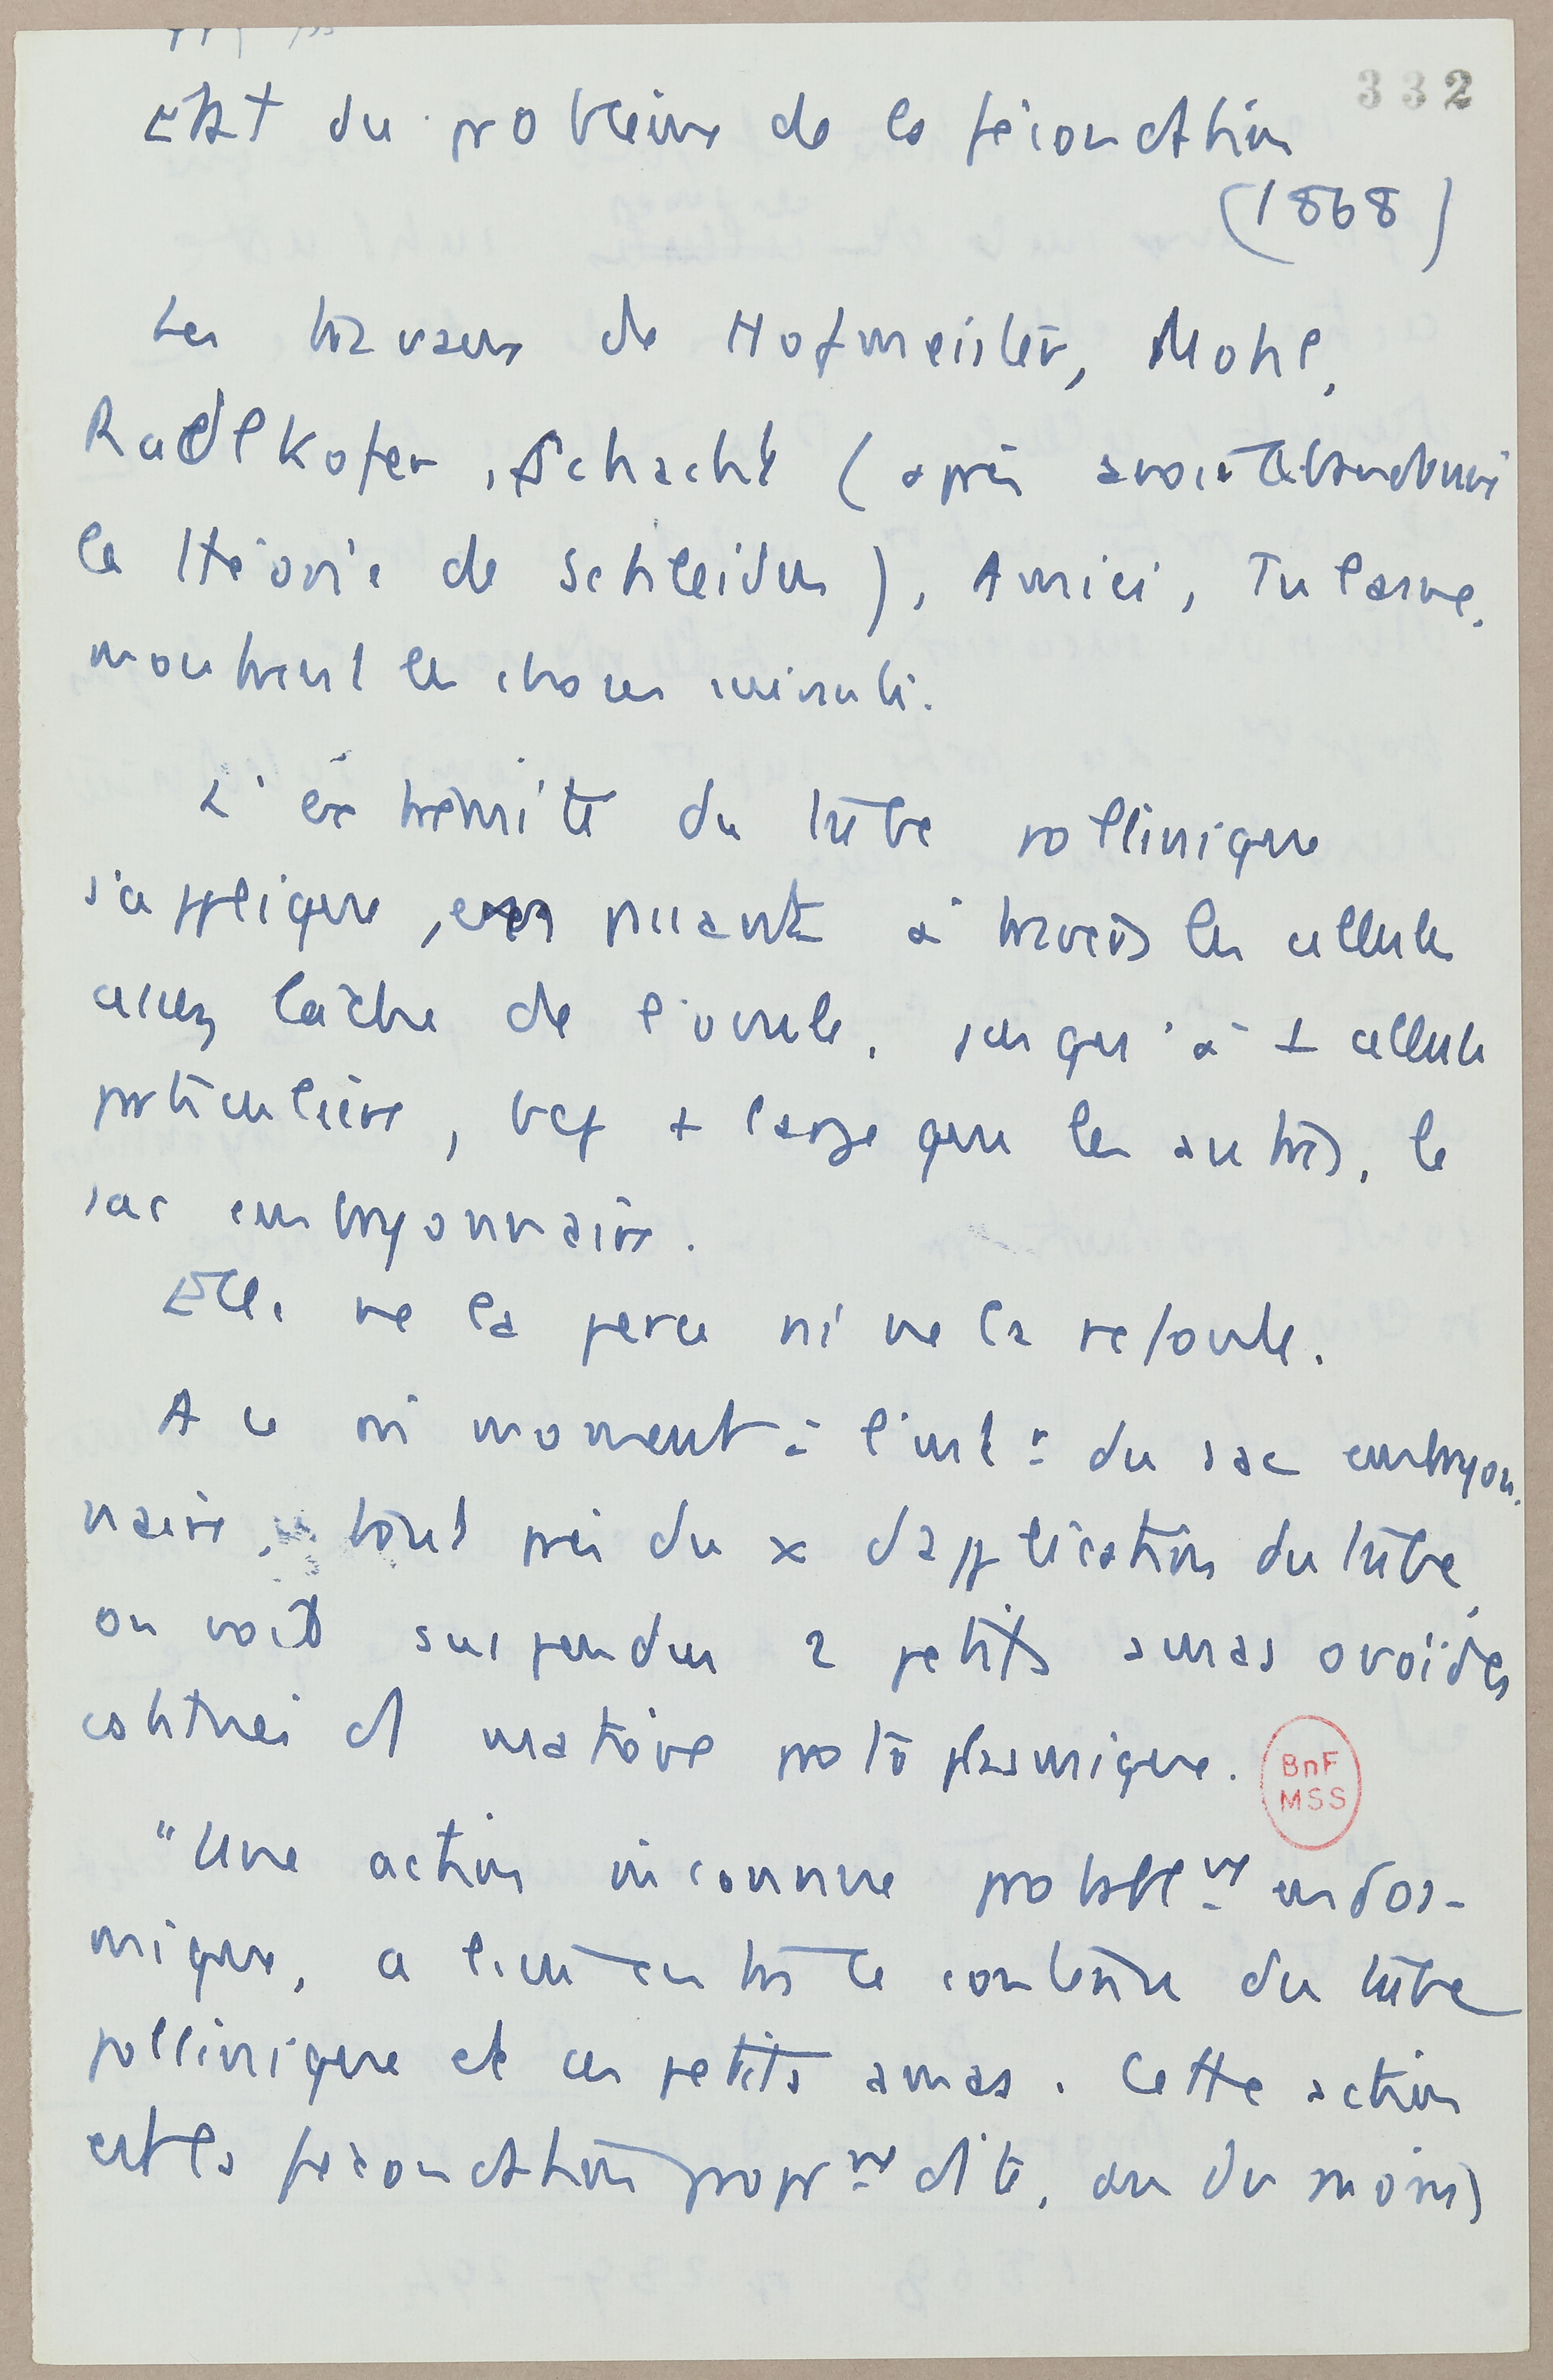 332
Etat du problème de la fécondation
(1868)
Les travaux de Hofmeister, Mohl,
Radlkofer, Schacht (après avoir abandonné
la théorie de Schleiden), Amici, Tulasne,
montrent les choses
L'extrémité du tube pollinique
s'applique, en passant à travers les cellules
assez lâches de l'ovule, jusqu'à 1 cellule
particulière, bcp + large que les autres, le
sac embryonnaire.
Elle ne la perce ni ne la refoule.
A ce moment à l'intr du sac embryon-
naire, tout près du x d'application du tube,
on voit suspendus 2 petits amas ovoïdes
constitués d matière protoplasmique.
"Une action inconnue probablemt endos-
mique, a lieu entre le contenu du tube
pollinique et ces petits amas. Cette action
est la fécondation proprmt dite, ou du moins
BnF
MSS